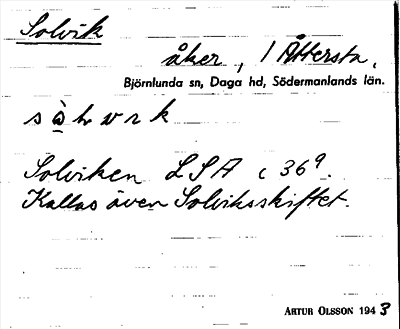 Solvik
åker, 1 Åttersta,
Björnlunda sn, Daga hd, Södermanlands län.
Solviken LSA c 36⁹.
Kallas även Solviksskiftet.
ARTUR OLSSON 1943